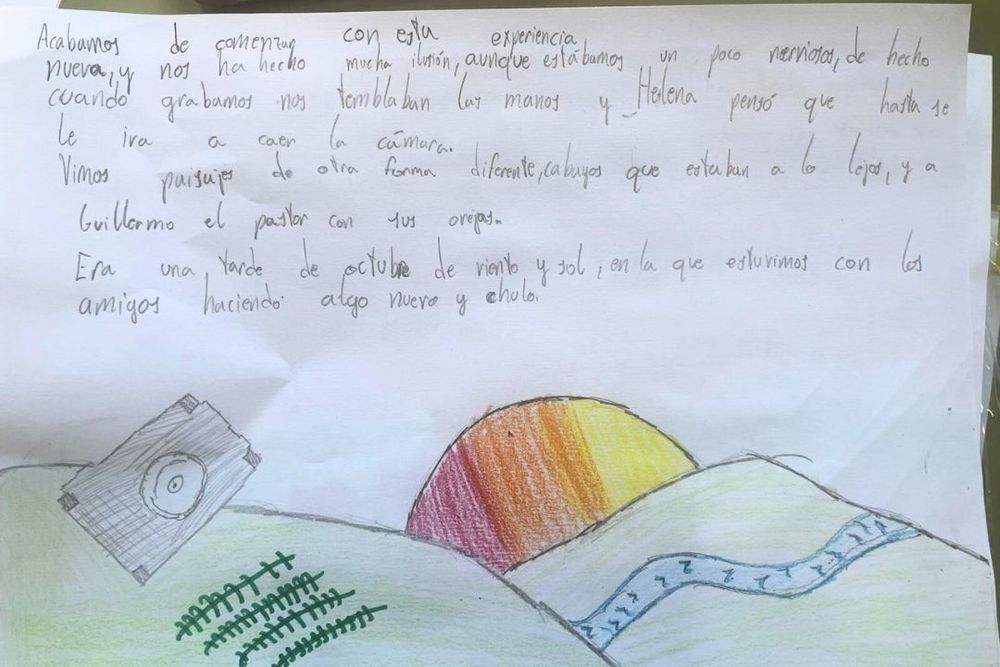 Acabamos de comenzar con esta experiencia
nueva, y nos ha hecho mucha ilusión, aunque estábamos un poco nerviosos, de hecho
cuando grabamos nos temblaban las manos y Helena pensó que hasta se
le iva a caer la cámara.
Vimos paisajes de otra forma diferente, cabayos que estaban a lo lejos, y a
Guillermo el pastor con sus orejas.
Era una tarde de octubre de viento y sol, en la que estuvimos con los
amigos haciendo algo nuevo y chulo.